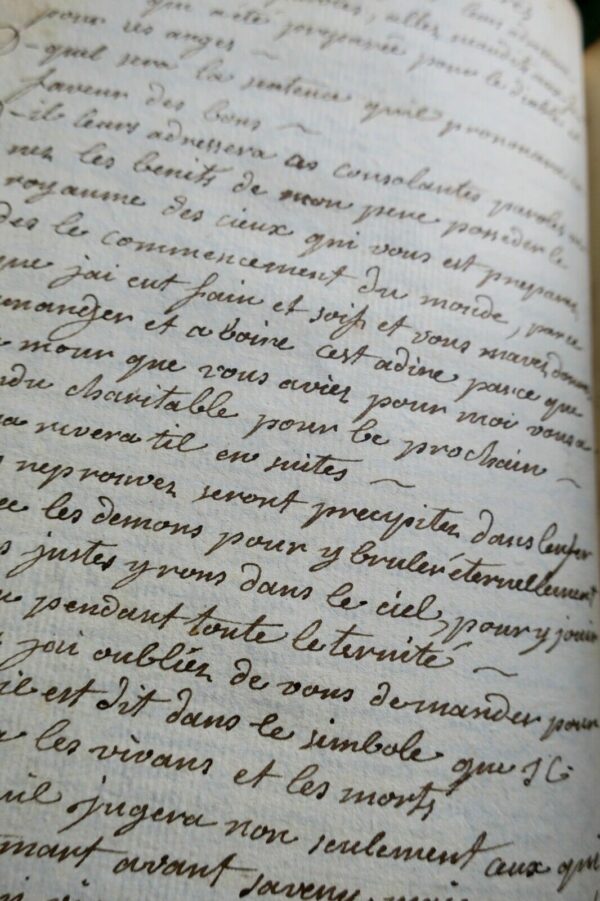 leurs
allez maudits
que a été preparée pour le diable et
pour ses anges
-quel sera la sentence quil prononcera en
faveur des bons
-il leurs adressera ces consolantes paroles
nez les benits de mon pere posseder le
royaume des cieux qui vous est preparez
des le commencement du monde, parce
que jai eut fain et soif et vous mavez donnez
manger et a boire cest adire parce que
mour que vous aviez pour moi vous a
ndu charitable pour le prochain
a rivera til en suites
reprouvez seront precipitez dans lenfer
les demons pour y bruler éternellement
justes yrons dans le ciel, pour y jouir
pendant toute leternité
jai oubliéz de vous demander pour
il est dit dans le simbole que JC
les vivans et les morts
uil jugera non seulement ceux qui
mort avant